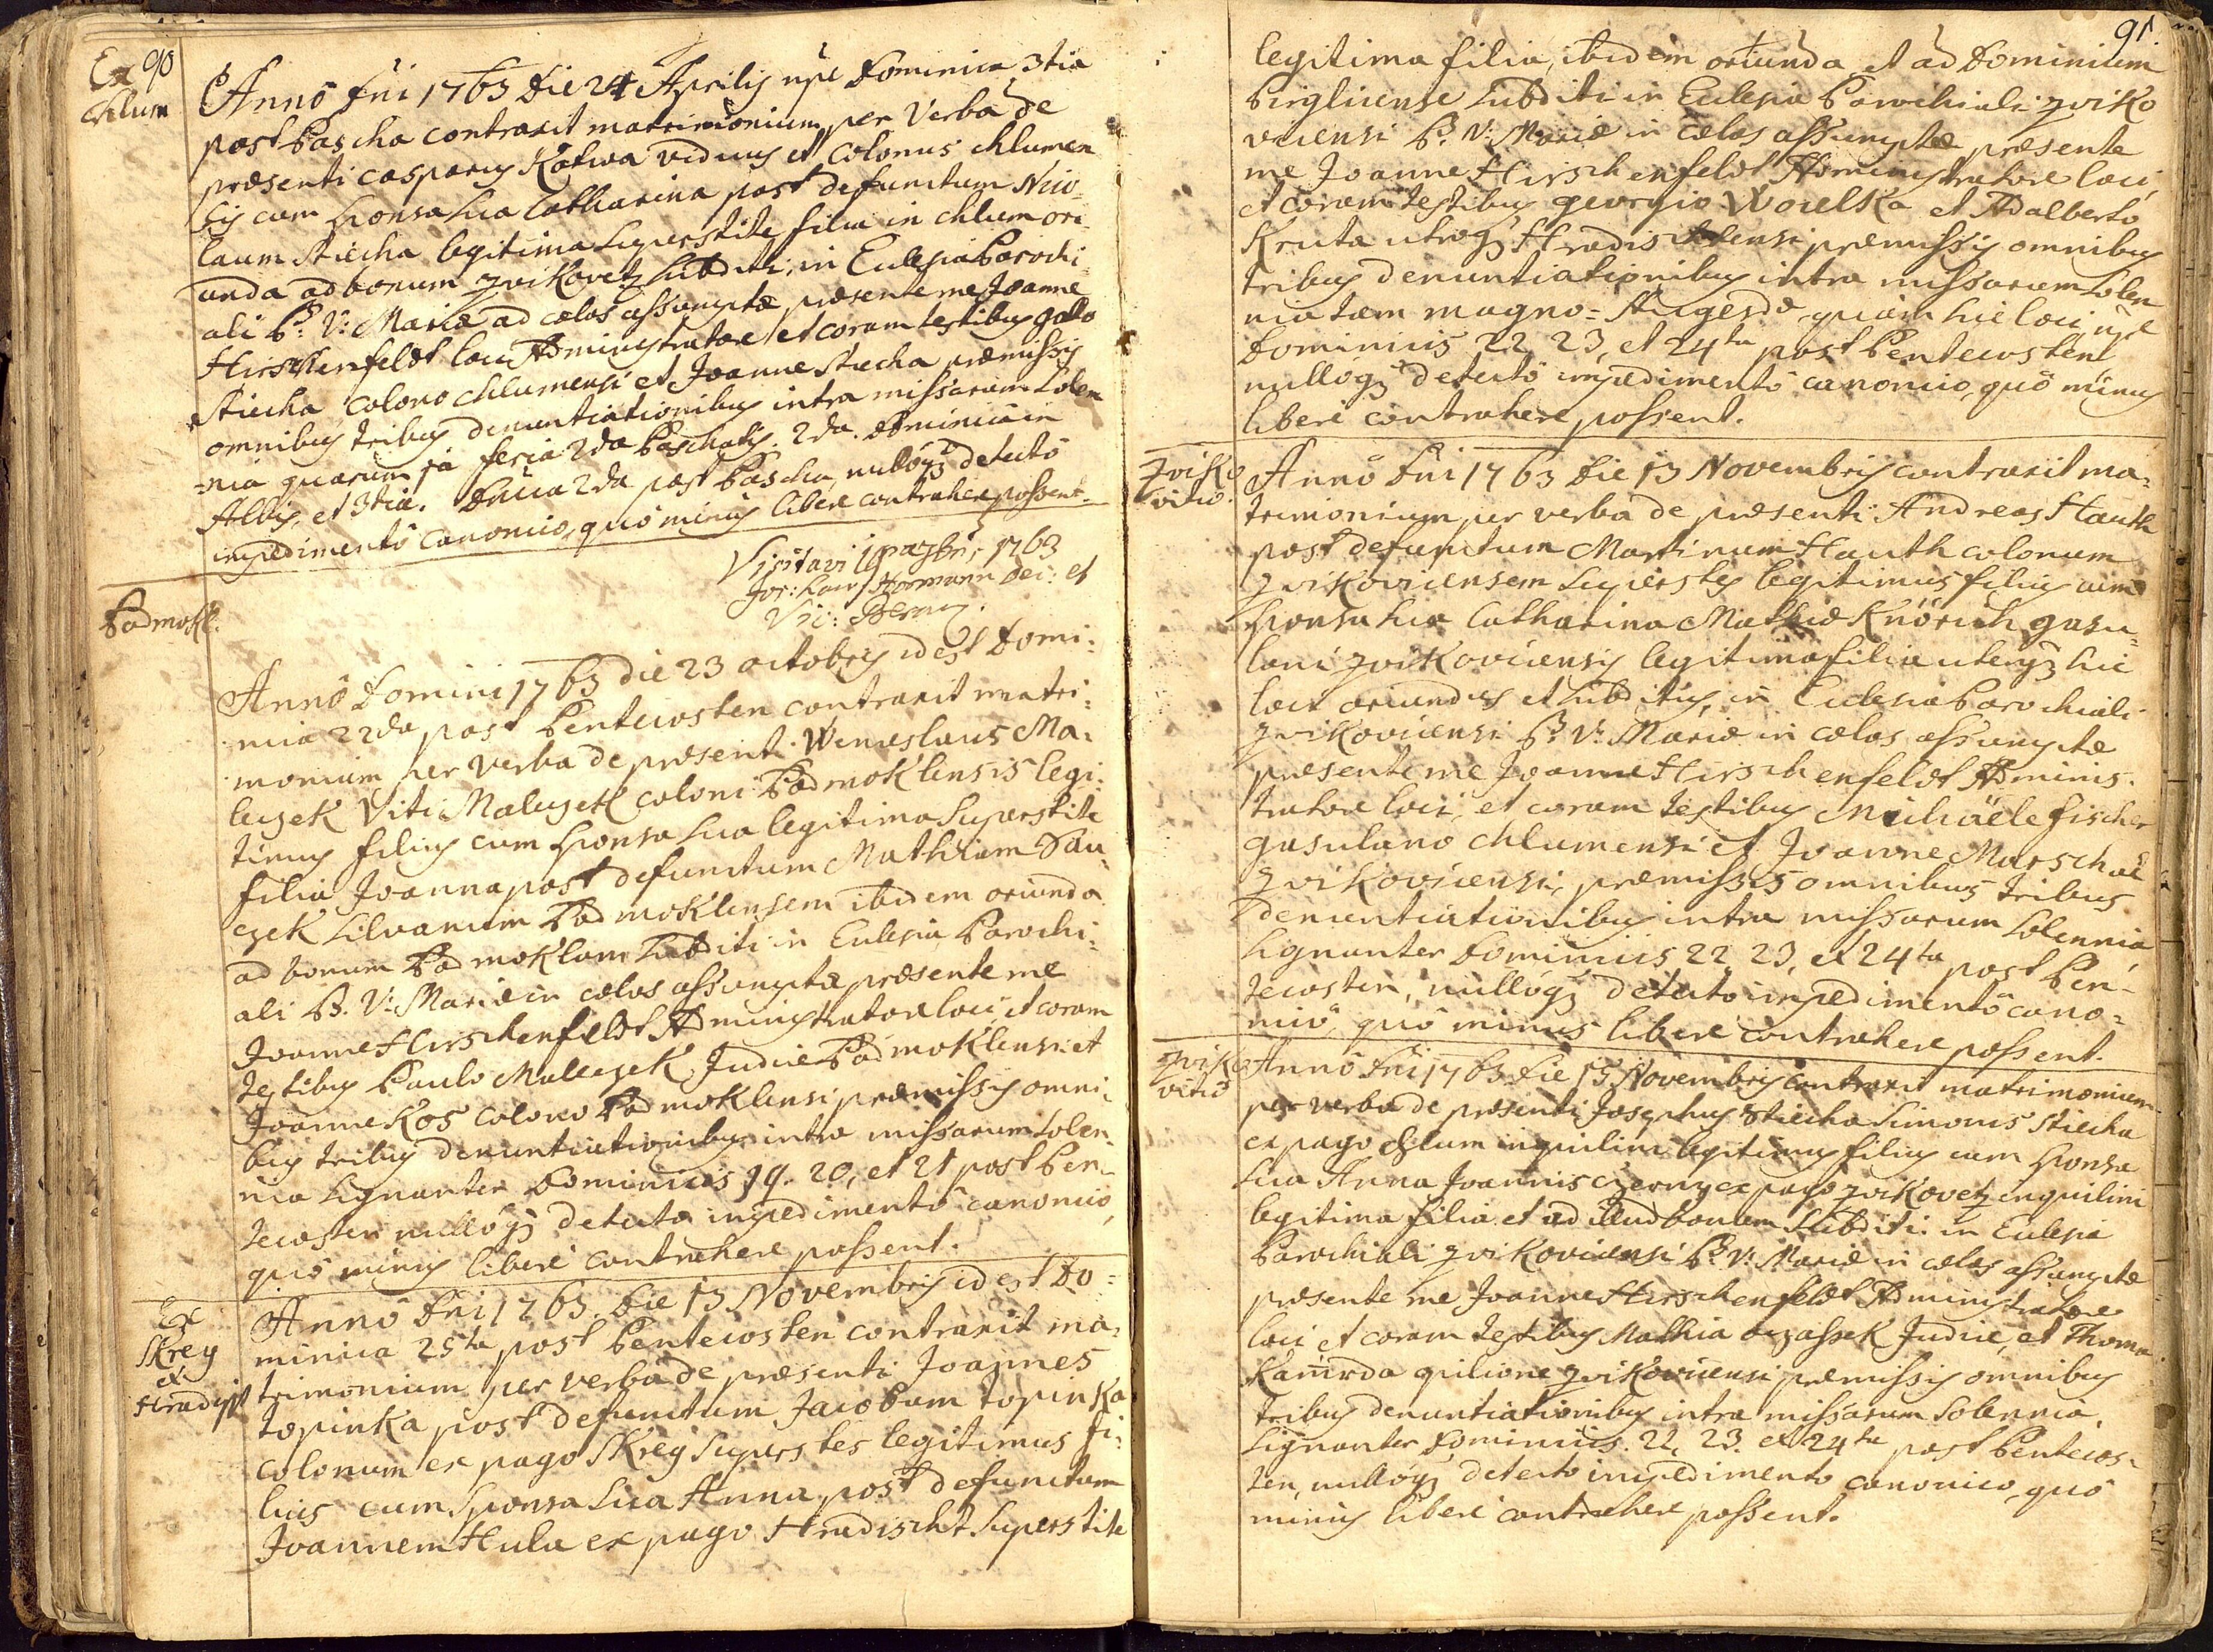 90
Ex
Chlum
Annô Dni 1763 Die 24 Aprilis npe Dominica 3tia
post Pascha contraxit matrimonium per Verba de
præsenti casparus Kotwa viduus et Colonus chlumen
sis cum sponsa sua Catharina post defunctum Nico-
laum Stiecha legitima superstite filia in chlum ori-
unda ad bonum Zvikovetz subditi, in Eclesia Parochi
ali B: V: Mariæ ad cœlos assumptæ præsente me Joanne
Hirschenfeldt loci Administratore et coram testibus gallo
Stiecha colono chlumensi et Joanne Stiecha præmissis
omnibus tribus denuntiationibus intra missarum Solem
nia quarum 1a feria 2da Paschatis. 2da. Dominica in
Albis, et 3tia. Dnica 2da post Pascha, nullóq detectô
impedimentô canonico, quô minus liberè contrahere possent.
Visitavi 19 1763
Jos: Hormann Dec: et
Vic:
Podmokl.
Annô Domini 1763 die 23 octobris id est Domi-
nica 22da post Pentecosten contraxit matri-
monium per verba de præsenti Wenceslaus Ma-
leczek Viti Maleczek coloni Podmoklensis legi-
timus filius cum sponsa sua legitima superstite
filia Joanna post defunctum Mathiam Sau-
czek Silvanum Podmoklensem ibidem oriunda
ad bonum Podmoklam Subditi in Eclesia Parochi-
ali B. V: Mariæ in cœlos assumptæ præsente me
Joanne Hirschenfeldt Administratore loci, et coram
testibus Paulo Maleczek Judice Podmoklensi et
Joanne Kos colono Podmoklensi præmissis omni-
bus tribus denuntiationibus intra missarum Solen-
nia signanter Dominicis 19. 20, et 21 post Pen-
tecosten nullóq detecto impedimentô canonico,
quô minus liberè contrahere possent.
Ex
Skrey
et
Hradist
Annô Dni 1763. Die 13 Novembris id est Do-
minica 25ta post Pentecosten contraxit ma-
trimonium per verba de præsenti Joannes
Topinka post defunctum Jacobum Topinka
colonum ex pago Skrey superstes legitimus fi-
lius cum sponsa sua Anna post defunctum
Joannem Hula ex pago Hradischt superstite
91.
legitima filia, ibidem oriunda et ad Dominium
Pirglicense subditi in Eclesia Parochiali Zviko
vicensi B. V: Mariæ in cœlos assumptæ præsente
me Joanne Hirschenfeldt Administratore loci,
et coram testibus georgio Worelka et Adalberto
Kruta utroq Hradischtensi præmissis omnibus
tribus denuntiationibus intra missarum Solen
nia tam magno-Augezdæ, quàm hic loci, npe
Dominicis 22, 23, et 24ta post Pentecosten
nullóq detectô impedimentô canonico, quô minus
liberè contrahere possent.
Zviko
vitio.
Annô Dni 1763 Die 13 Novembris contraxit ma-
trimonium per verba de præsenti Andreas Hauth
post defunctum Martinum Hauth colonum
Zvikovicensem superstes legitimus filius cum
sponsa sua Catharina Mathiæ Knörich gasu-
lani Zvikovicensis legitima filia uterq hic
loci oriundus et subditus, in Eclesia Parochiali
Zvikovicensi B: V: Mariæ in cœlos assumptæ
præsente me Joanne Hirschenfeldt Adminis-
tratore loci, et coram testibus Michäele fischer
gasulano chlumensi et Joanne Marschal
Zvikovicensi, præmissis omnibus tribus
denuntiationibus intra missarum Solennia
signanter Dominicis 22, 23, et 24ta post Pen-
tecosten, nullóq detecto impedimentô cano-
nicô, quô minus liberè contrahere possent.
Zviko
vitio
Annô Dni 1763 Die 13 Novembris contraxit matrimonium
per verba de præsenti Josephus Stiecha Simonis Stiecha
ex pago chlum inquilini legitimus filius cum sponsa
sua Anna Joannis Czerny ex pago Zvikovetz inquilini
legitima filia et ad illud bonum Subditi in Eclesia
Parochiali Zvikovicensi B: V: Mariæ in cœlos assumptæ
præsente me Joanne Hirschenfeldt Administratore
loci et coram testibus Mathia oczassek Judice, et Thoma
Kanirda opilione Zvikovicensi præmissis omnibus
tribus denuntiationibus intra missarum Solennia,
signanter Dominicis. 22, 23. et 24ta post Pentecos-
ten, nullóq detecto impedimento canonico, quô
minus liberè contrahere possent.